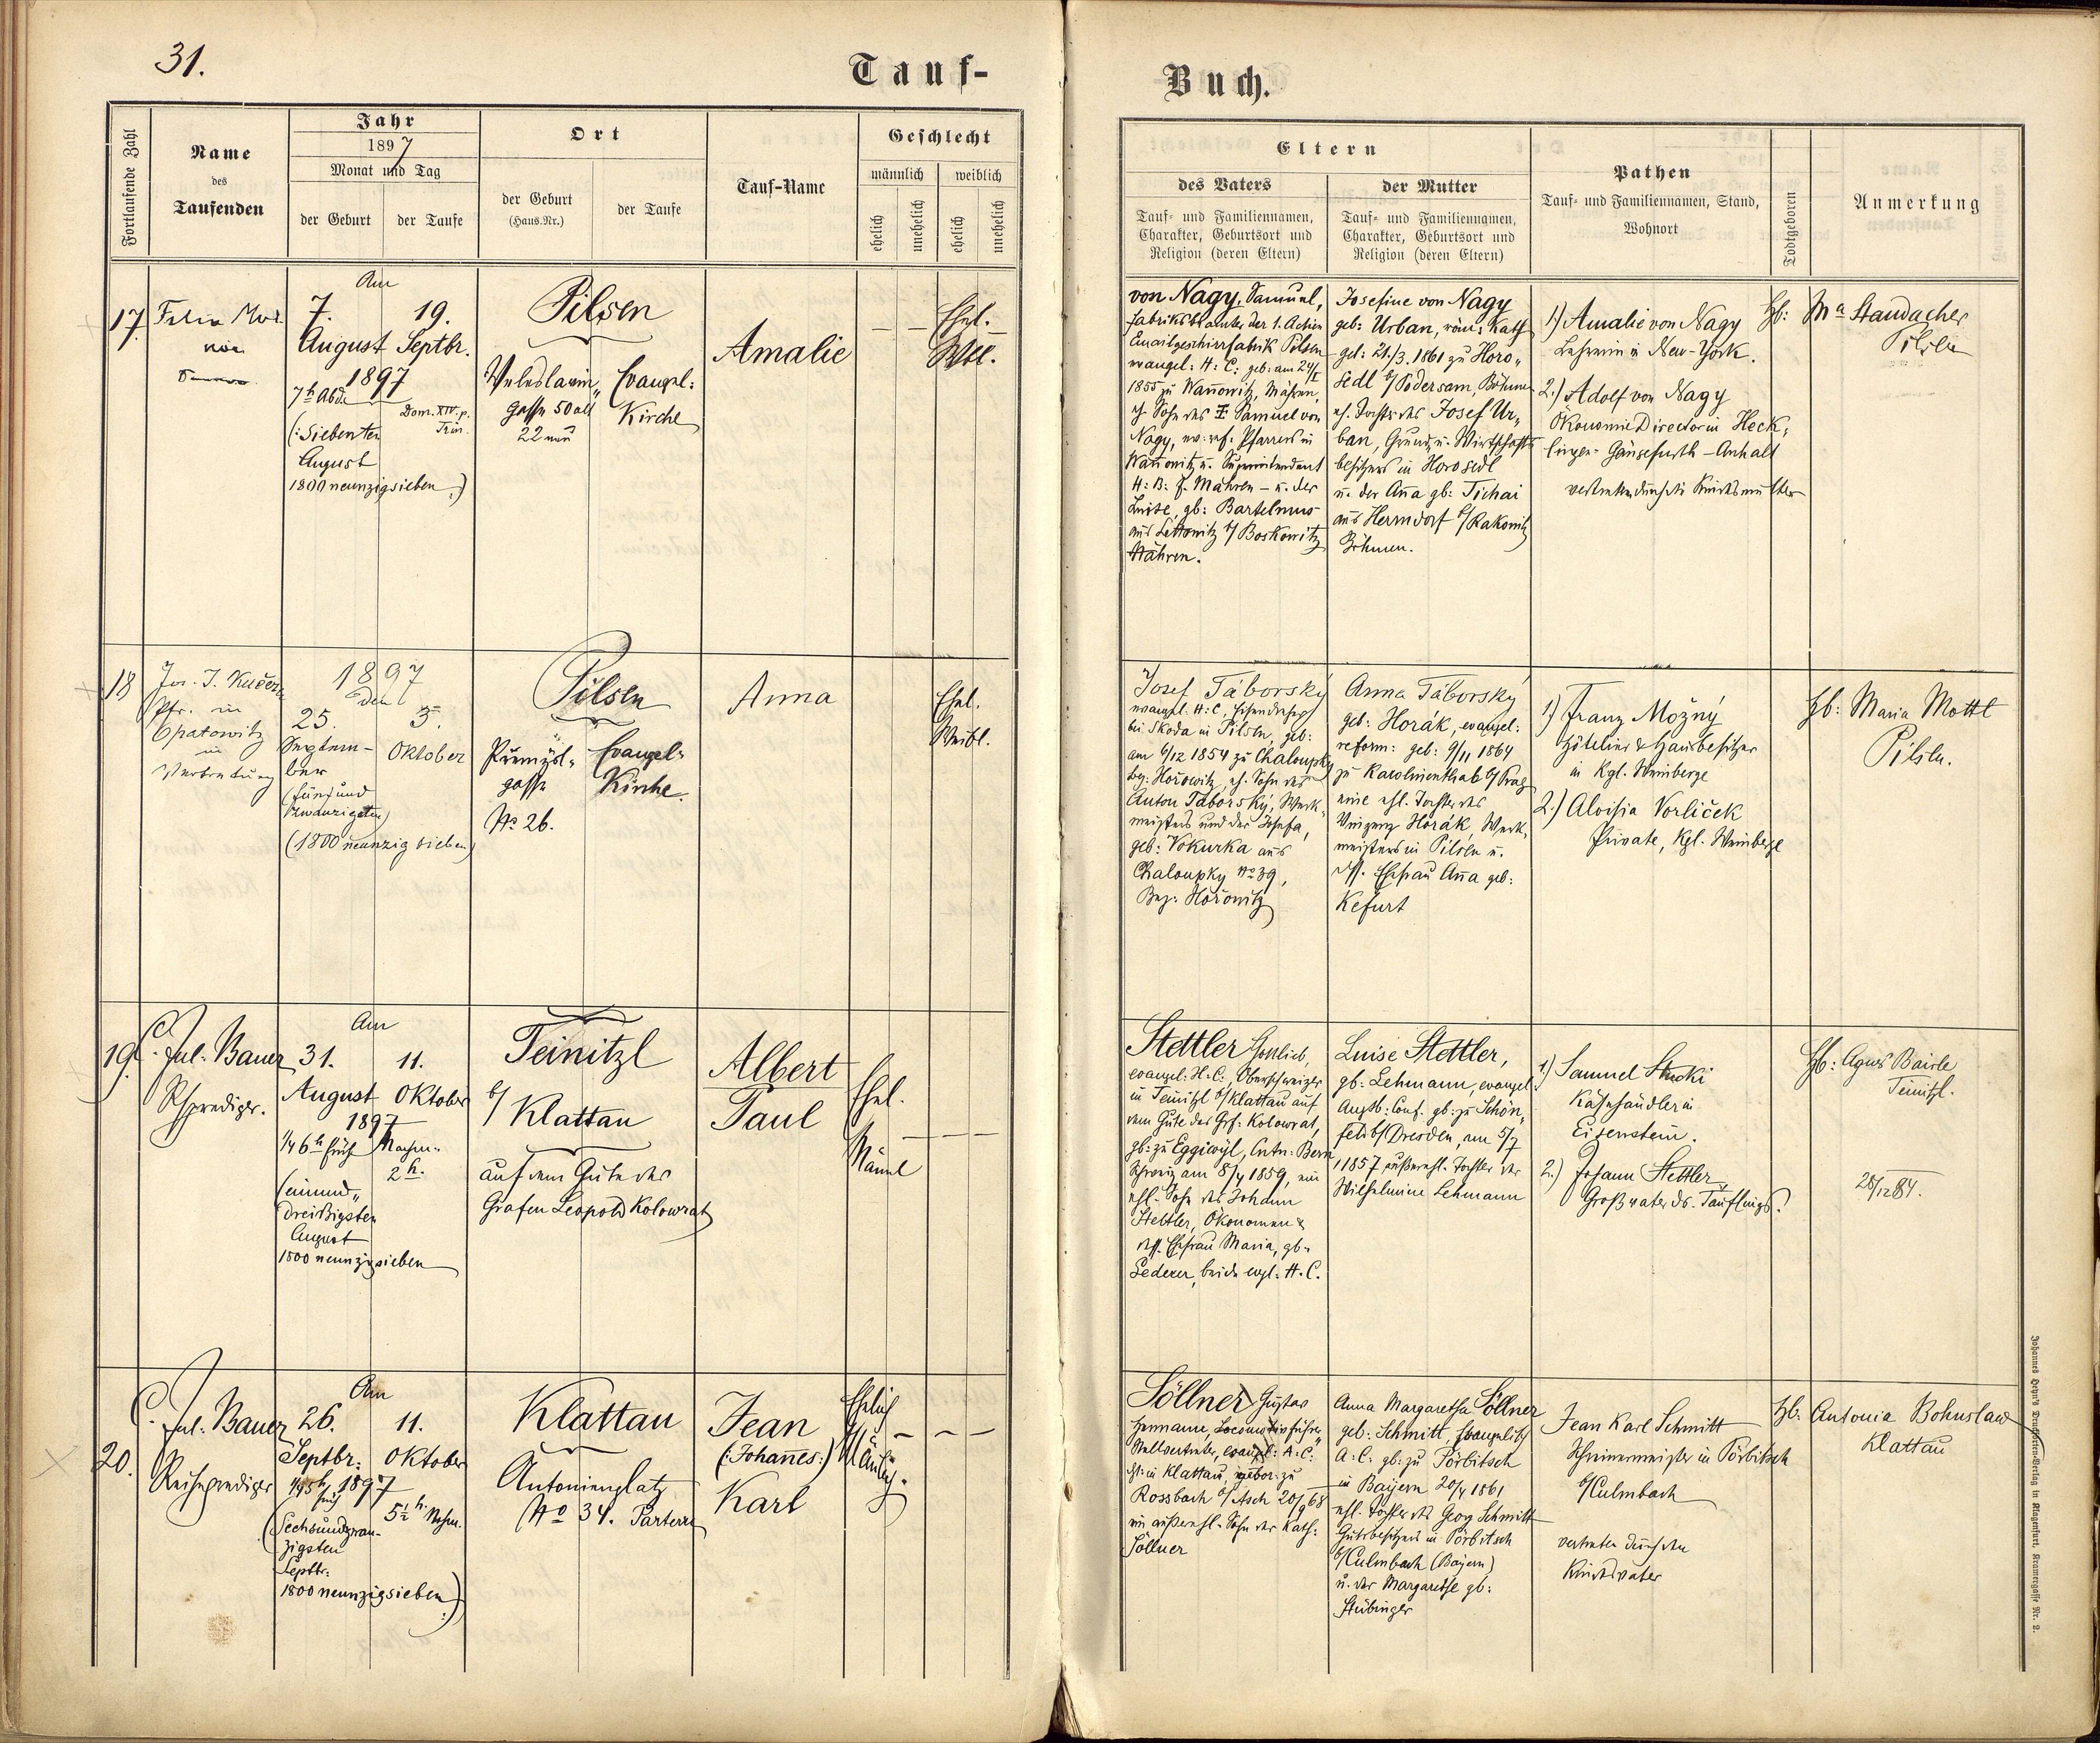 31.
Tauf-
Buch.
Fortlaufende Zahl
Name
des
Taufenden
Jahr
1897
Monat und Tag
der Geburt
der Taufe
Ort
der Geburt
(Haus-Nr.)
der Taufe
Tauf-Name
Geschlecht
männlich
weiblich
ehelich
unehelich
ehelich
unehelich
Eltern
des Vaters
Tauf- und Familiennamen,
Charakter, Geburtsort und
Religion (deren Eltern)
der Mutter
Tauf- und Familiennamen,
Charakter, Geburtsort und
Religion (deren Eltern)
Pathen
Tauf- und Familiennamen, Stand,
Wohnort
Todtgeboren
Anmerkung
17.
Am
7.
August
1897
7h Abds
(: Siebenten
August
1800 neunzigsieben :)
19.
Septbr.
Dom. XIV. p.
Trin.
Pilsen
gasse 50 alt
22 neu
Evangel:
Kirche
Amalie
Ehel.
von Nagy, Samuel,
Fabriksbeamter der 1. Actien
Emailgeschirrfabrik Pilsen
evangel: H: C: geb: am 24/I
1855 zu Wanowitz, Mähren,
eh. Sohn des Samuel von
Nagy, ev: ref. Pfarrers in
Wanowitz u. Superintendent
H: B: f. Mähren – u. der
Luise, gb: Bartelmus
aus Lettowitz b/ Boskowitz
Mähren.
Josefine von Nagy
geb: Urban, röm: Kath
geb: 21./3. 1861 zu Horo-
sedl b/ Podersam, Böhmen
eh. Tochter des Josef Ur-
ban, Grund u. Wirtschafts
besitzers in Horosedl
u. der Anna gb: Tichai
aus Herrndorf b/ Rakonitz
Böhmen.
1.) Amalie von Nagy
Lehrerin in New-York.
2.) Adolf von Nagy
Ökonomie Director in Heck-
lingen- Gänsefurth – Anhalt
vertreten durch die Kindesmutter
Hb: Ma Standacher
Pilsen
18
Jos. J. Kučera
Pfr. in
Opatowitz
in
Vertretung
1897
den
25.
Septem-
ber
(fünfund
zwanzigsten)
(1800 neunzig sieben)
3.
Oktober
Pilsen
Přemysl-
gasse
No 26.
Evangel.
Kirche.
Anna
Ehel.
Weibl.
Josef Táborský
evangel. H: C.
bei Skoda in Pilsen, geb:
am 6/12 1854 zu Chaloupky
Bez: Hořowitz, eh. Sohn des
Anton Táborský, Werk-
meisters und der Josefa,
geb: Vokurka aus
Chaloupky No 39,
Bez: Hořowitz
Anna Táborský
geb: Horák, evangel:
reform: geb: 9/11 1864
zu Karolinenthal b/ Prag
eine ehl. Tochter des
Vinzenz Horák, Werk-
meisters in Pilsen u.
dss. Ehfrau Anna geb:
Kefurt
1.) Franz Možný
Hôtelier & Hausbesitzer
in Kgl. Weinberge
2.) Aloisia Vorliček
Private, Kgl. Weinberge
Hb: Maria Mottl
Pilsen.
19.
C. Jul. Bauer
Rsprediger.
Am
31.
August
1897
1/4 6h früh
(einund-
dreißigsten
August
1800 neunzigsieben
11.
Oktober
Nachm.
2h.
Teinitzl
b/ Klattau
auf dem Gute des
Grafen Leopold Kolowrat
Albert
Paul
Ehel.
Männl
Stettler Gottlieb,
evangel: H. C:, Oberschweizer
in Teinitzl b/ Klattau auf
dem Gute des Grf: Kolowrat,
gb: zu Eggiwyl, Cntn: Bern
Schweiz am 8/4 1859, ein
ehl. Sohn des Johann
Stettler, Ökonomen &
dss. Ehfrau Maria, gb.
Lederer, beide evgl: H. C.
Luise Stettler,
gb: Lehmann, evangel
Augsb: Conf. gb: zu Schön-
feld b/ Dresden, am 5/7
1857 außerehl. Tochter der
Wilhelmine Lehmann
1.) Samuel Stucki
Käsehändler in
Eisenstein.
2.) Johann Stettler,
Großvater ds. Täuflings.
Hb: Agnes Baierle
Teinitzl.
28/12 84.
20.
C. Jul. Bauer
Reiseprediger
Am
26.
Septbr:
1/4 5h 1897
früh
(Sechsundzwan-
zigsten
Septbr:
1800 neunzigsieben :)
11.
Oktober
5½ h. Nchm.
Klattau
Antonienplatz
No 34. Parterre
Jean
(: Johannes :)
Karl
Ehelich
Männlich.
Söllner Gustav
Hermann, Locomotivführer-
Stellvertreter, evangel: A. C:
in Klattau, gebor: zu
Rossbach b/ Asch 20/9 68
ein außerehl. Sohn der Kath:
Söllner
Anna Margaretha Söllner
geb: Schmitt, Evangelisch
A: C: gb: zu Pörbitsch
in Bayern 20/4 1861
ehl. Tochter des Georg Schmitt
Gutsbesitzers in Pörbitsch
b/ Culmbach (Bayern)
u. der Margarethe gb:
Stübinger
Jean Karl Schmitt
Schreinermeister in Pörbitsch
b/ Culmbach
vertreten durch den
Kindsvater
Hb: Antonia Bohuslaw
Klattau
Johannes Heyn's Drucksorten-Verlag in Klagenfurt, Kramergasse Nr. 2.